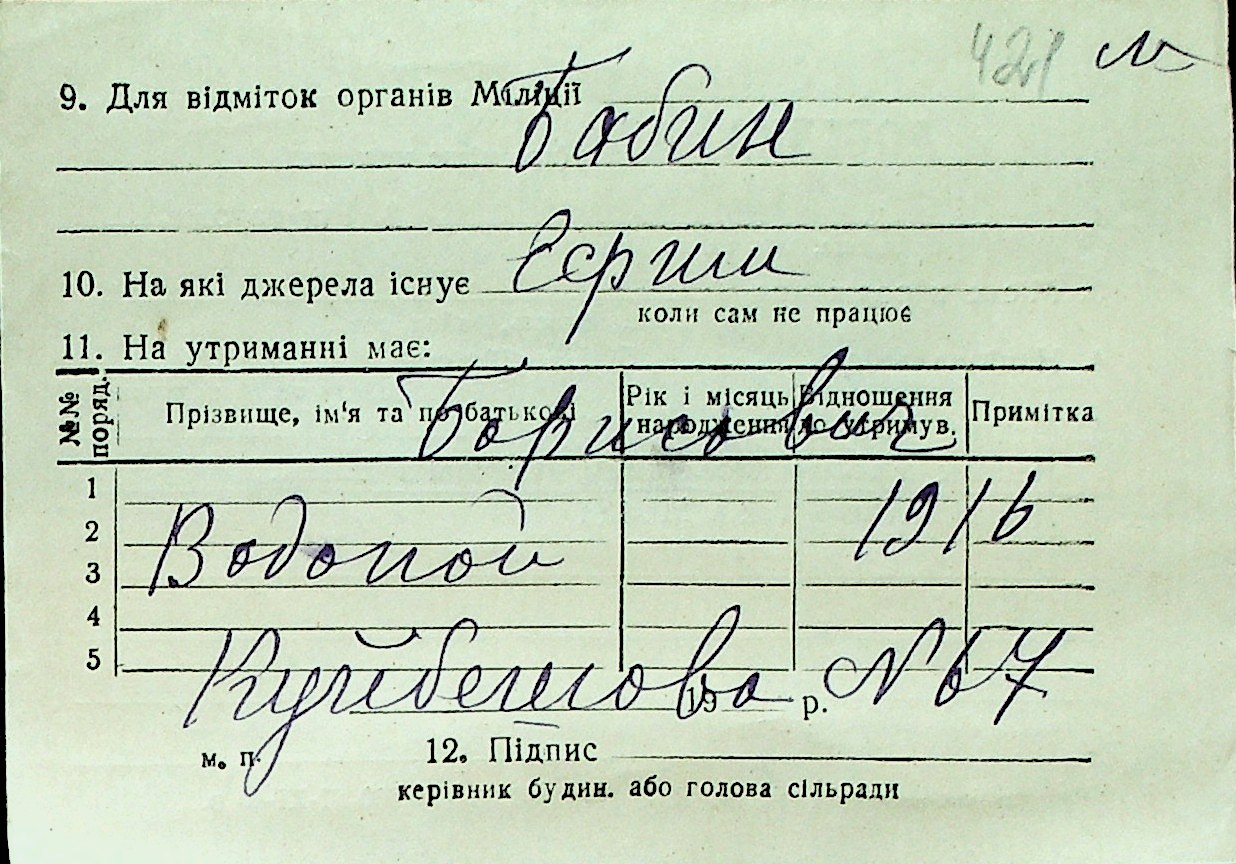 421 м
9. Для відміток органів Міліції
Бабин
10. На які джерела існує
Серги
коли сам не працює
11. На утриманні має:
№№ поряд. Прізвище, ім'я та по батькові Рік і місяць народження Відношення до утримув. Примітка
Борисович
1
1916
2
Водопой
3
4
5
Куйбешова 19 р. № 67
м. п. 12. Підпис
керівник будин. або голова сільради